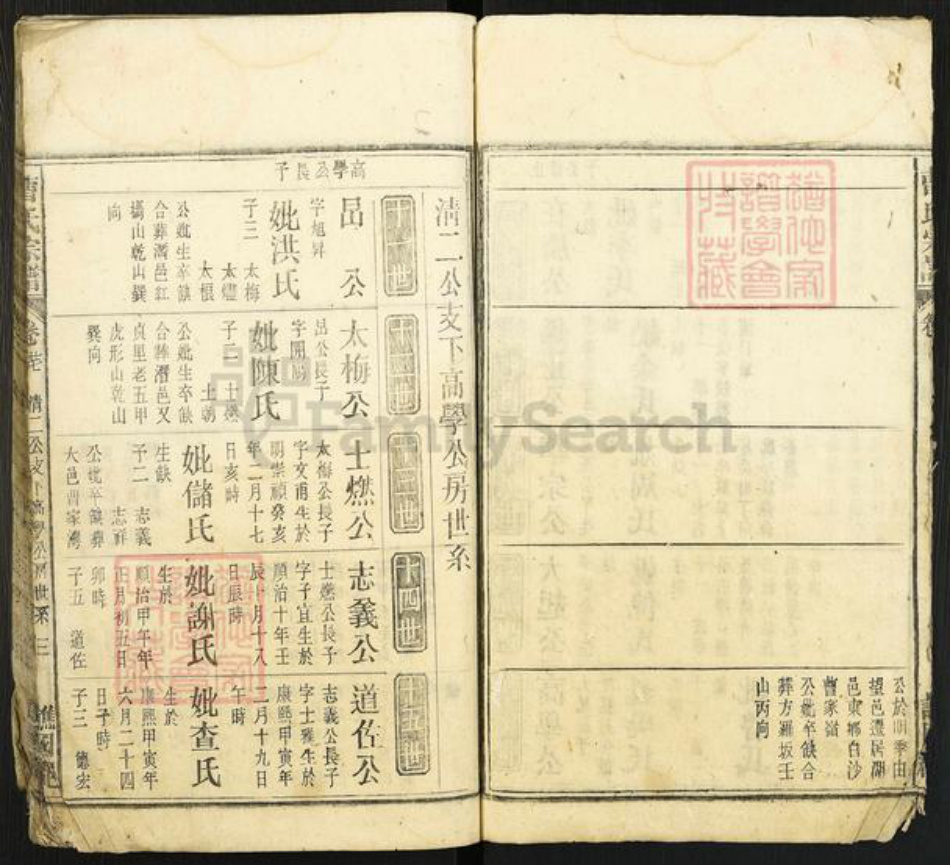 曹氏宗譜
公於明季由
望邑遷居湖
邑東鄉白沙
曹家嶺
公妣卒缺合
葬方羅坂壬
山丙向
猶他家譜學會收藏
清二公支下高學公房世系
十一世
高學公長子
昂公
字旭昇
妣洪氏
子三 太梅
太燼
太恨
公妣生卒缺
合葬潛邑紅
山乾山巽
向
十二世
太梅公
昂公長子
字開
妣陳氏
子二 士燃
士朝
公妣生卒缺
合葬潛邑又
貞里老五甲
虎形山乾山
巽向
十三世
士燃公
太梅公長子
字文甫生於
明崇禎癸亥
年二月十七
日亥時
妣儲氏
生缺
子二 志義
志祥
公妣卒缺葬
大邑曹家灣
十四世
志義公
士燃公長子
字子宜生於
順治十年壬
辰十月十八
日辰時
妣謝氏
生於
順治甲午年
正月初五日
卯時
子五 道佐
十五世
道佐公
志義公長子
字士雅生於
康熙甲寅年
二月十九日
午時
妣查氏
生於
康熙甲寅年
六月二十四
日子時
子三 德宏
曹氏宗譜 卷 清二公支下高學公房世系 三
FamilySearch